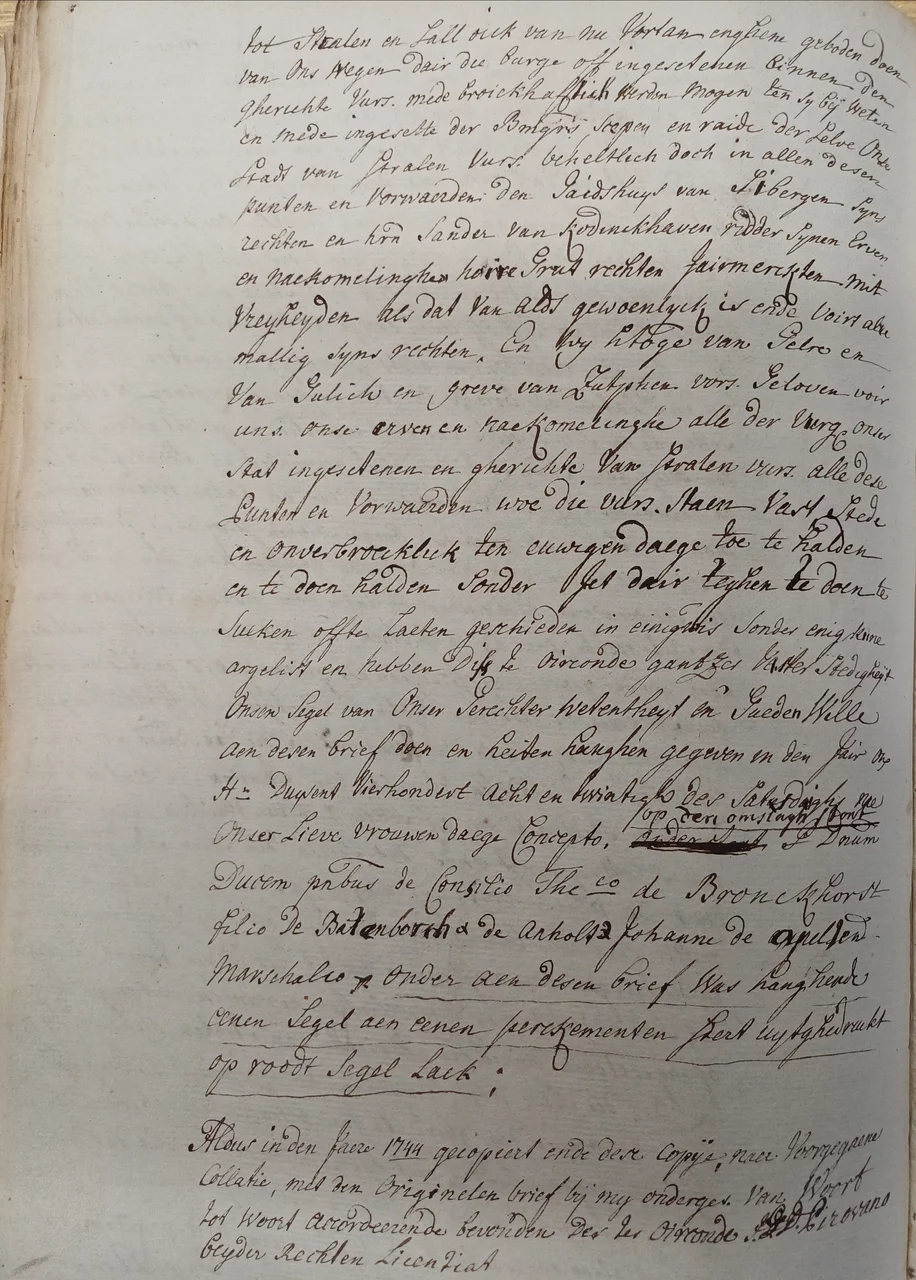 tot Stralen en Sall oick van nu Vortan enghene geboden doen
van Ons wegen dair die burge off ingesetenen binnen den
gherichte Vurs. mede broickhafftich werden Mogen ten sy bij Weten
en mede ingesette der Bmgrs Scepen en raide der Selve Onse
Stads van Stralen Vurs. beheltlich doch in allen desen
punten en Vorwaerden den Gaidshuys van Sibergen Syns
rechten en hrn Sander van Rodinckhaven ridder Synen Erven
en naekomelinghen hoire Grut rechten Jairmerckten mit
Vreyheyden als dat Van alds gewoenlyck is ende Voirt alre
mallig syns rechten. En Wy htoge van Gelre en
Van Gulich en greve van Zutphen vors. Geloven voir
uns. onse erven en naekomelinghe alle der Vurg onser
Stat ingesetenen en gherichte Van Stralen vurs. alle dese
Punten en Vorwaerden woe die vurs. Staen Vast Stede
en onverbroecklick ten euwigen daege toe te halden
en te doen halden Sonder Jet dair teghen te doen te
Sueken offte Laeten geschieden in einigwis Sonder enigkune
argelist en hebben Diss te Oirconde gantzer Vaster Stedigheyt
Onsen Segel van Onser Gerechter wetentheyt en Gueden Wille
aen desen brief doen en heiten hanghen gegeven in den Jair ons
Hn Duysent Vierhondert Acht en twintigh des Saterdaghs nae
op den omslagh stont
Onser Lieve vrouwen daege Concepto. P Dnum
Ducem pntbus de Consilio The co de Bronckhorst
filio De Batenborch & de Anholt & Johanne de apelten
Marschalco onder aen desen brief Was hanghende
eenen Segel aen eenen perckementen stert uytghedruckt
op roodt Segel Lack ;
Aldus in den Jaere 1744 gecopiert ende dese Copije, naer Voorgegaene
Collatie, met den Originelen brief bij my onderges. Van Woort
tot Woort Accordeerende bevonden Des ter Oirconde Pirovano
beyder Rechten Licentiat